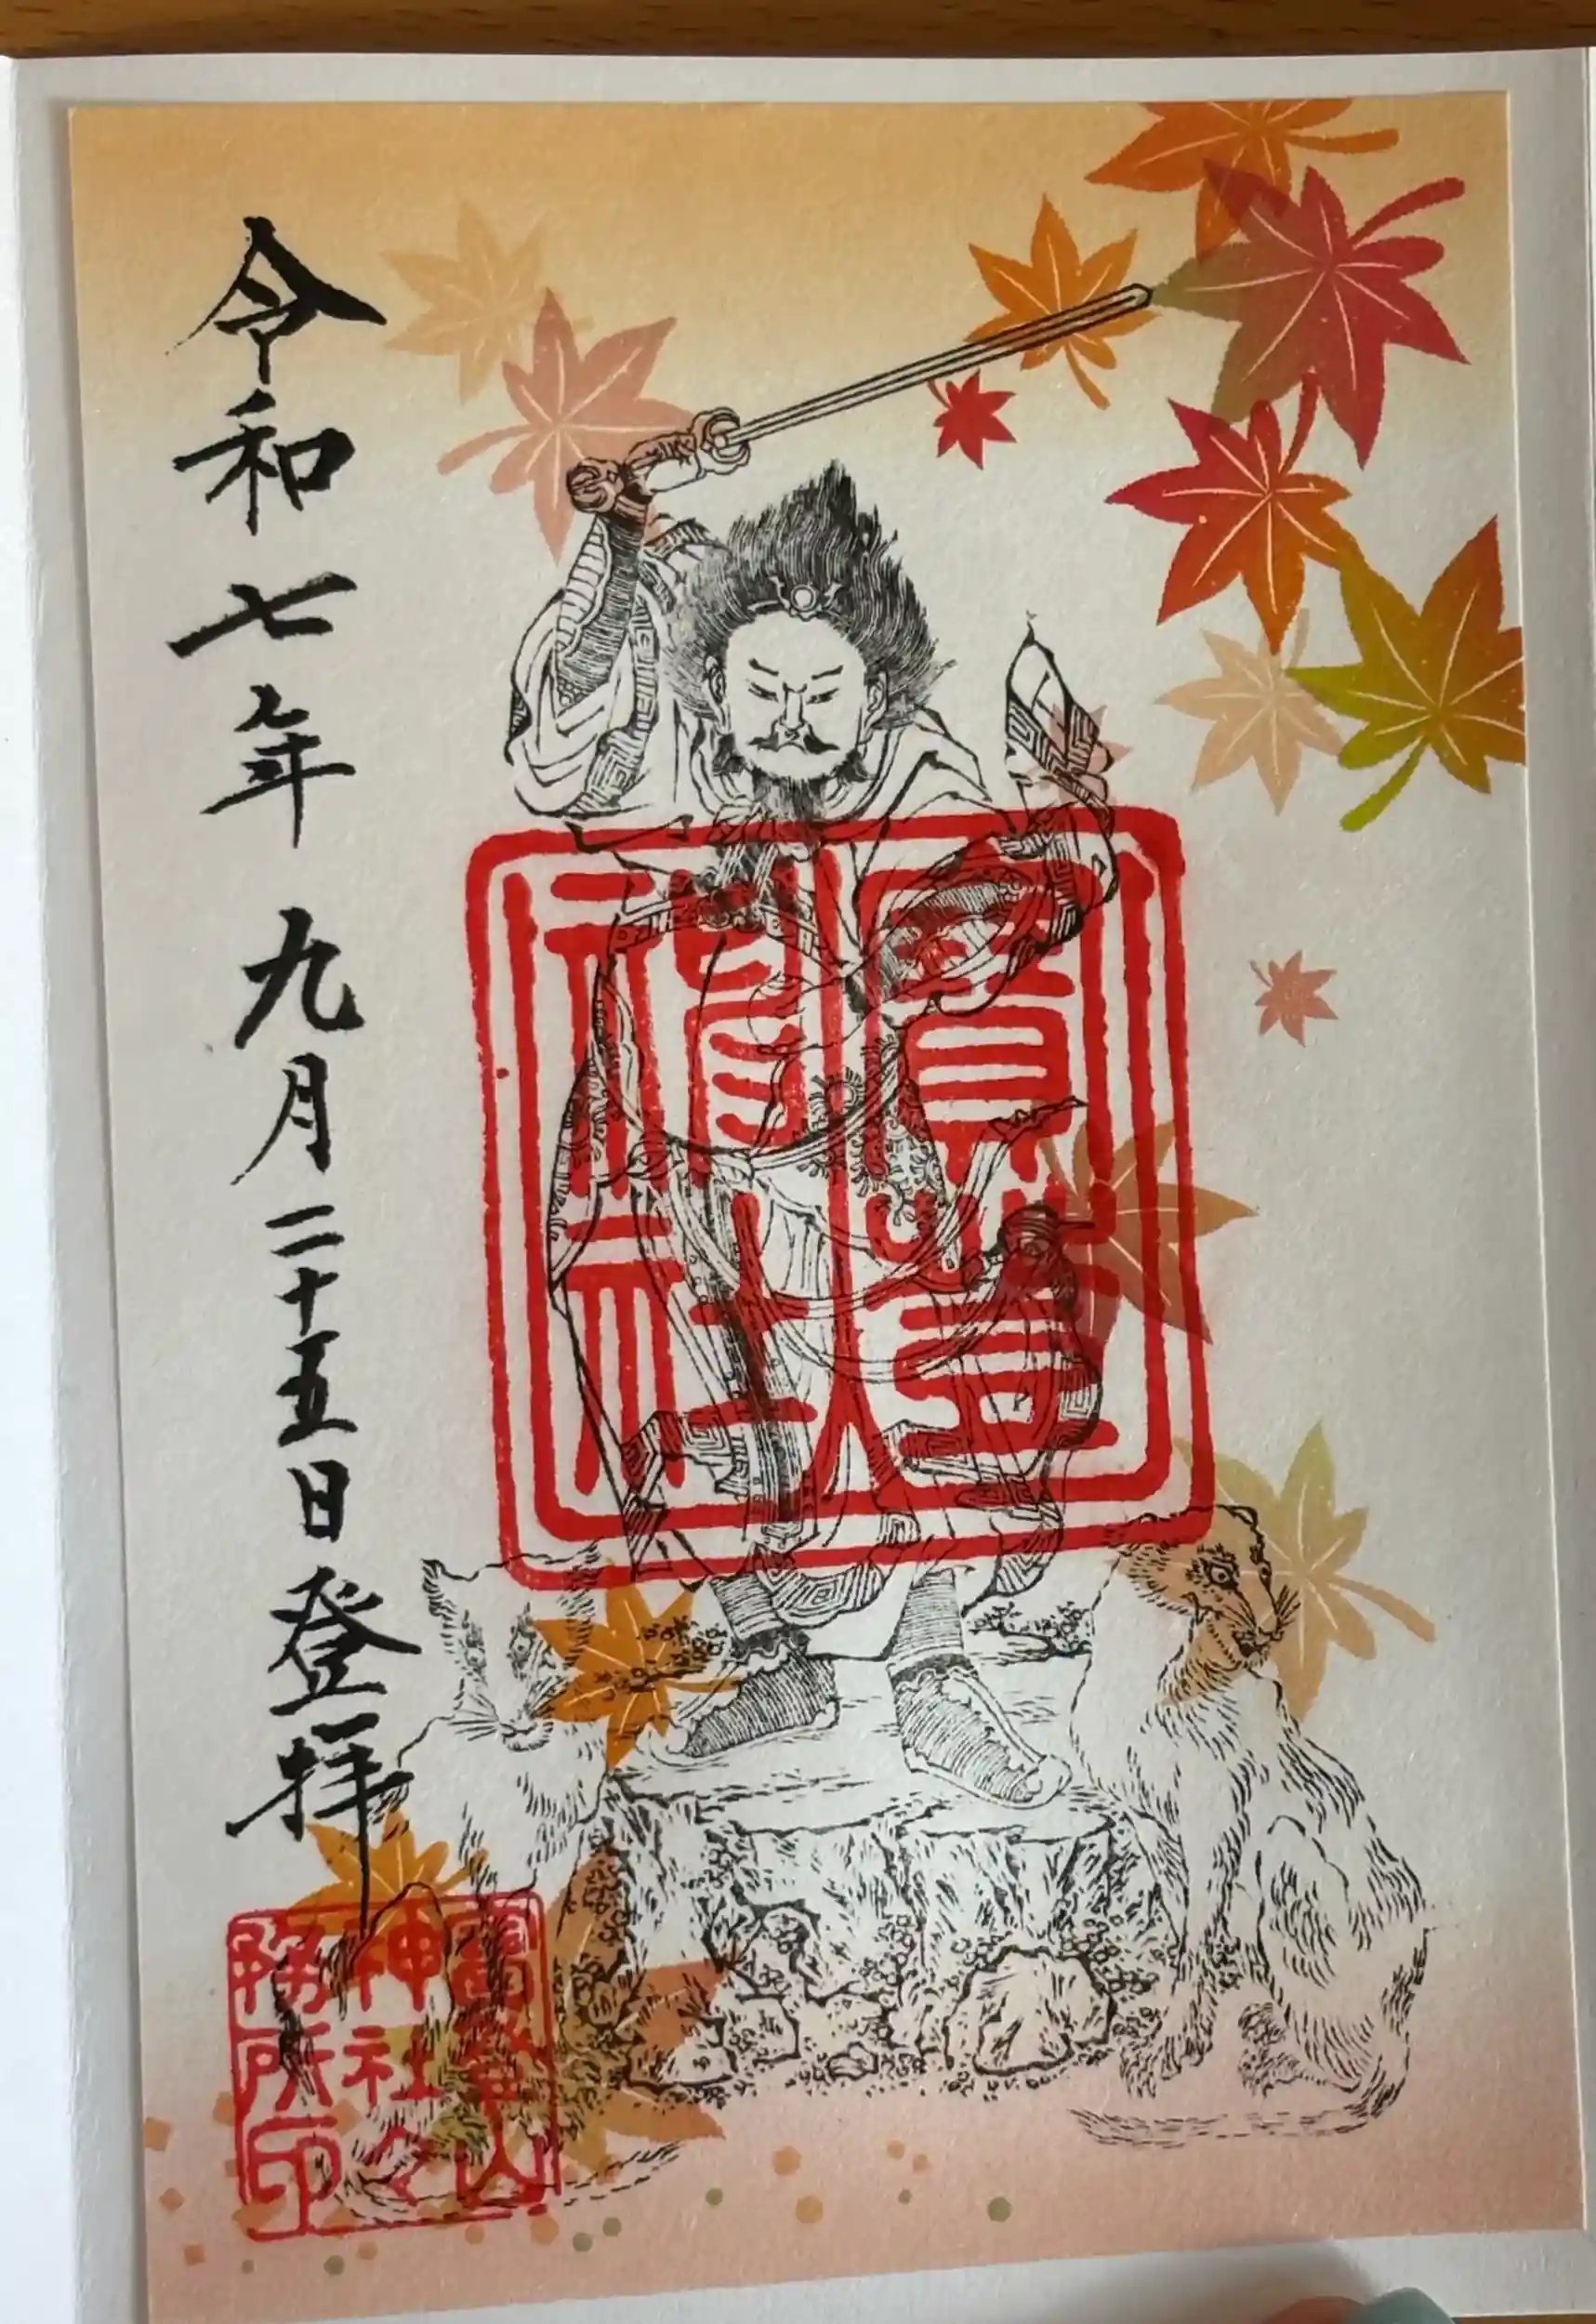 寳登
神社
令和七年九月二十五日登拝
寳登山
神社々
務所印